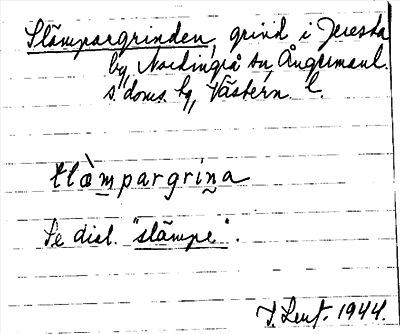 Slämpargrinden, grind i Jeresta
by, Nordingrå sn Ångermanl.
s. doms. by, Västern. l.
tlæ̀mpargrin̰a
Se dial. "slämpe".
J. Lenf. 1944.